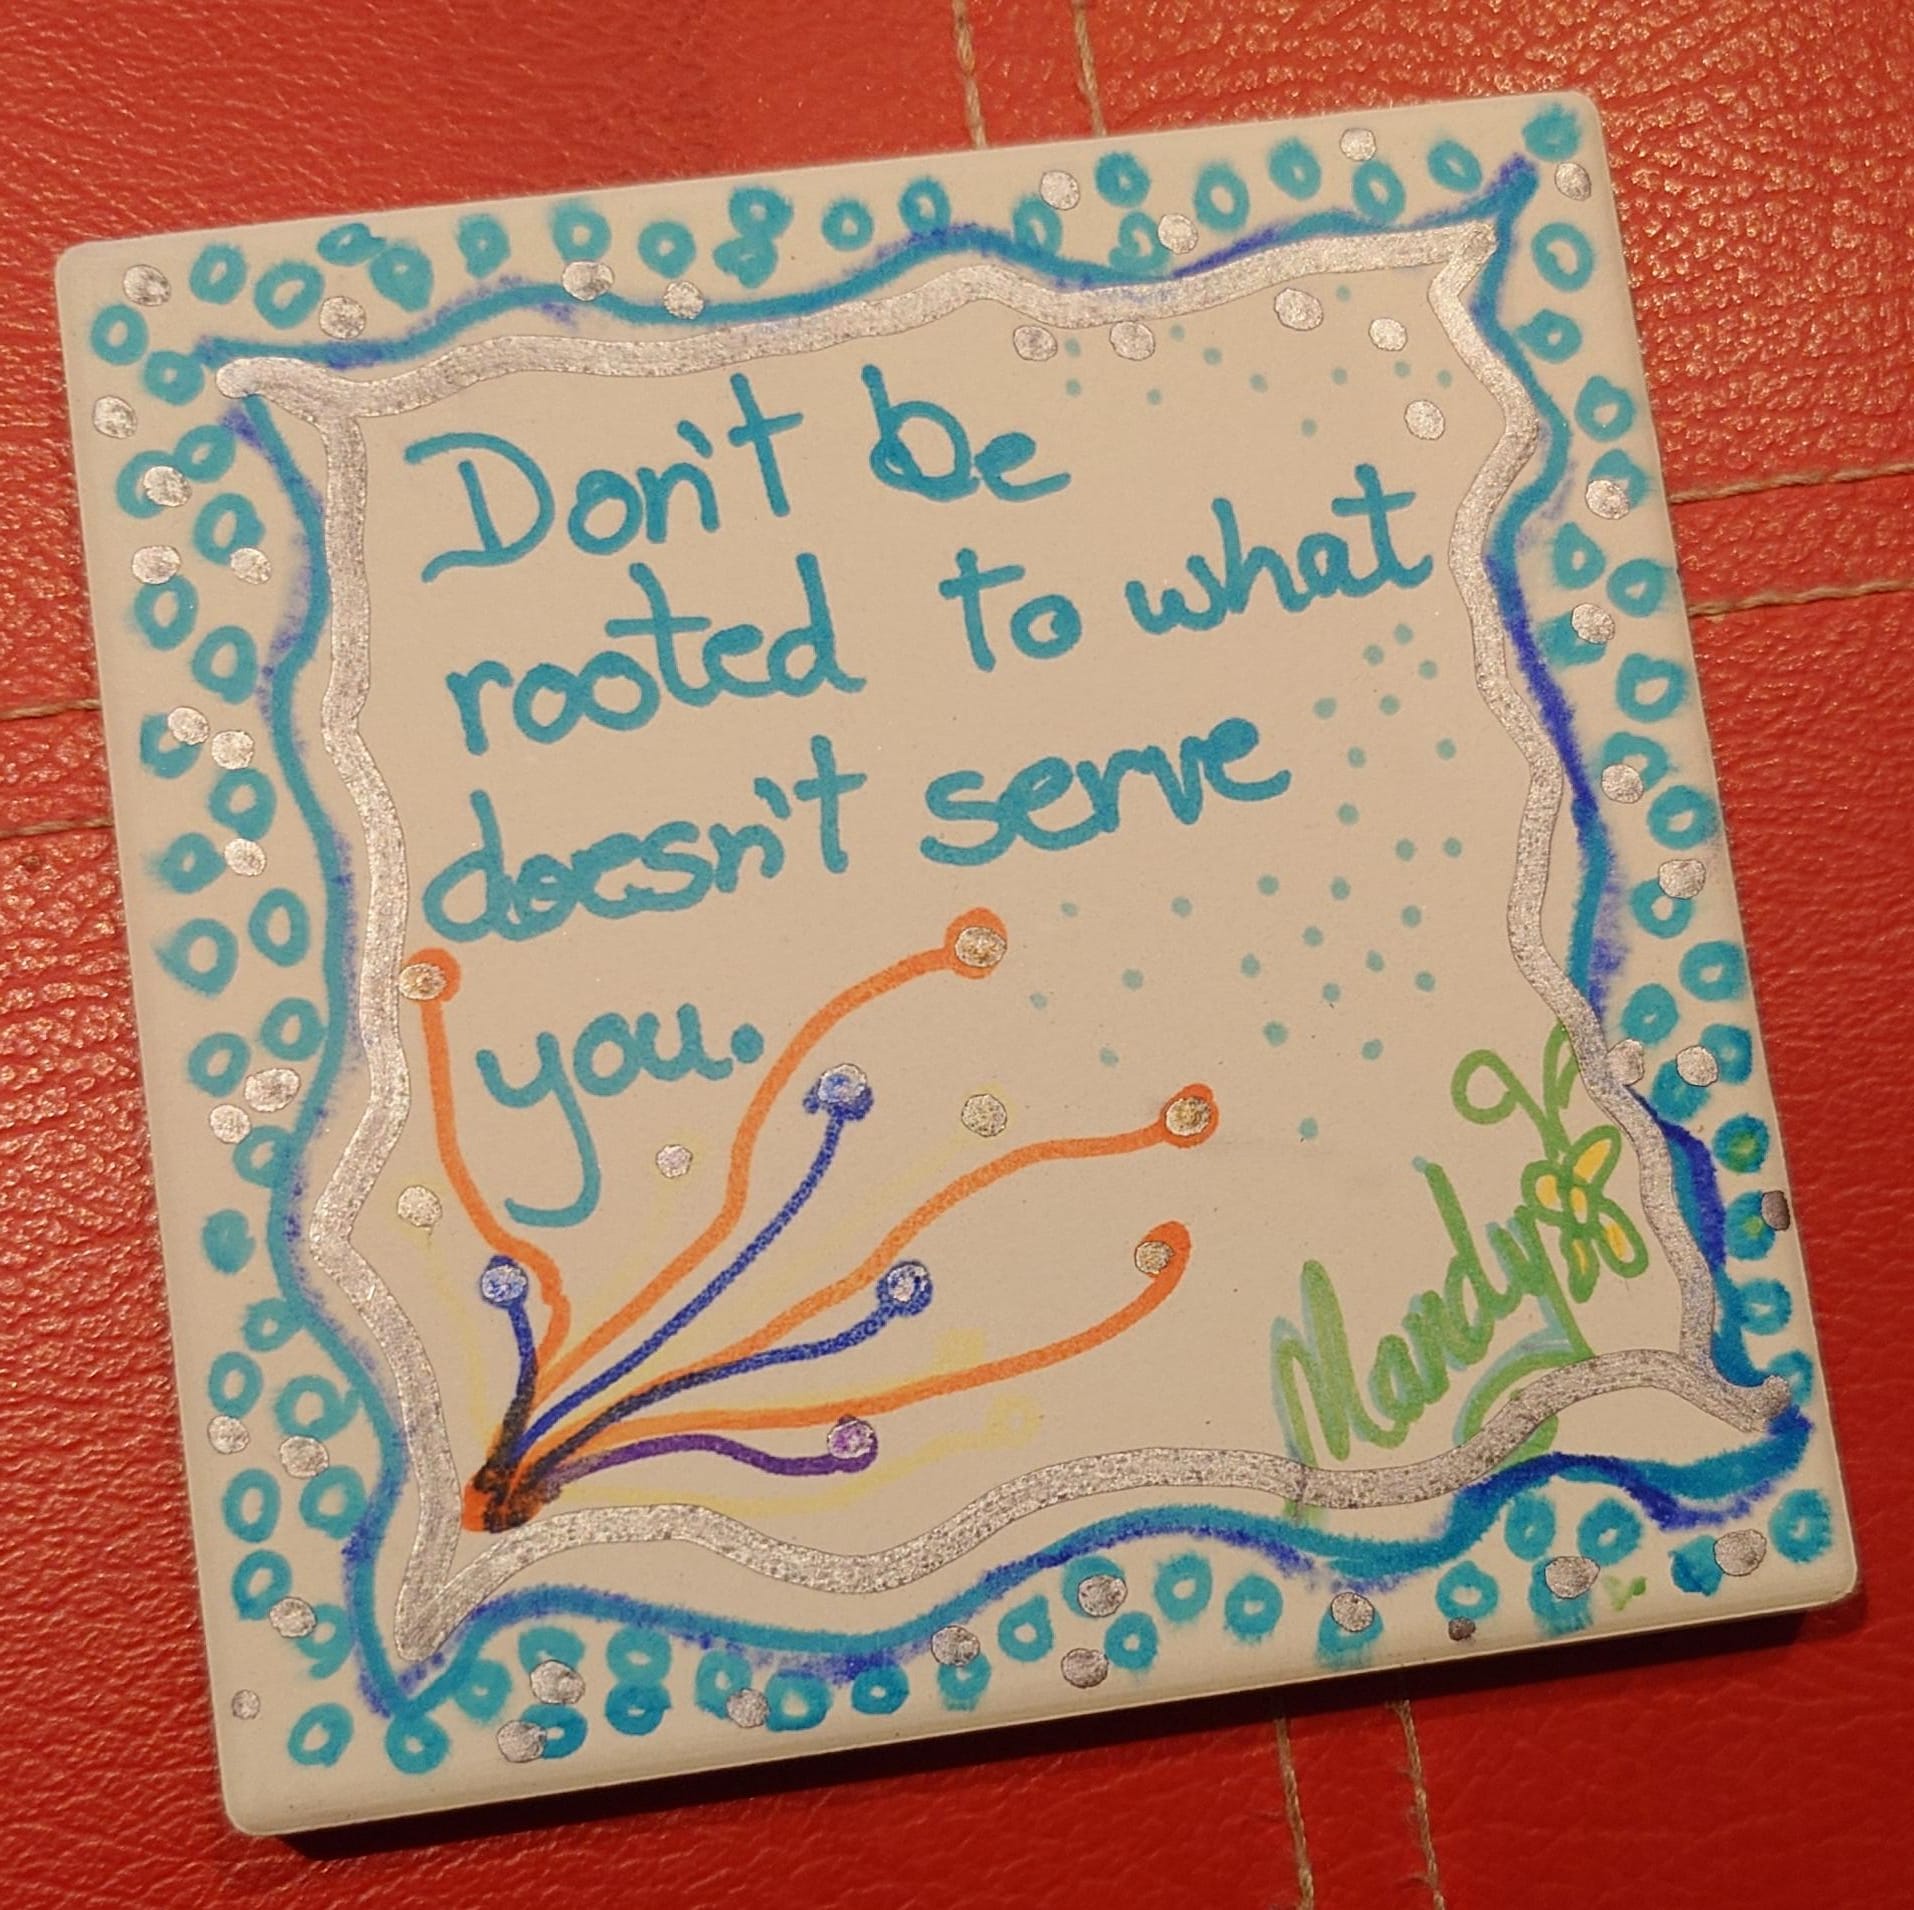 Don't be
rooted to what
doesn't serve
you.
Mandy